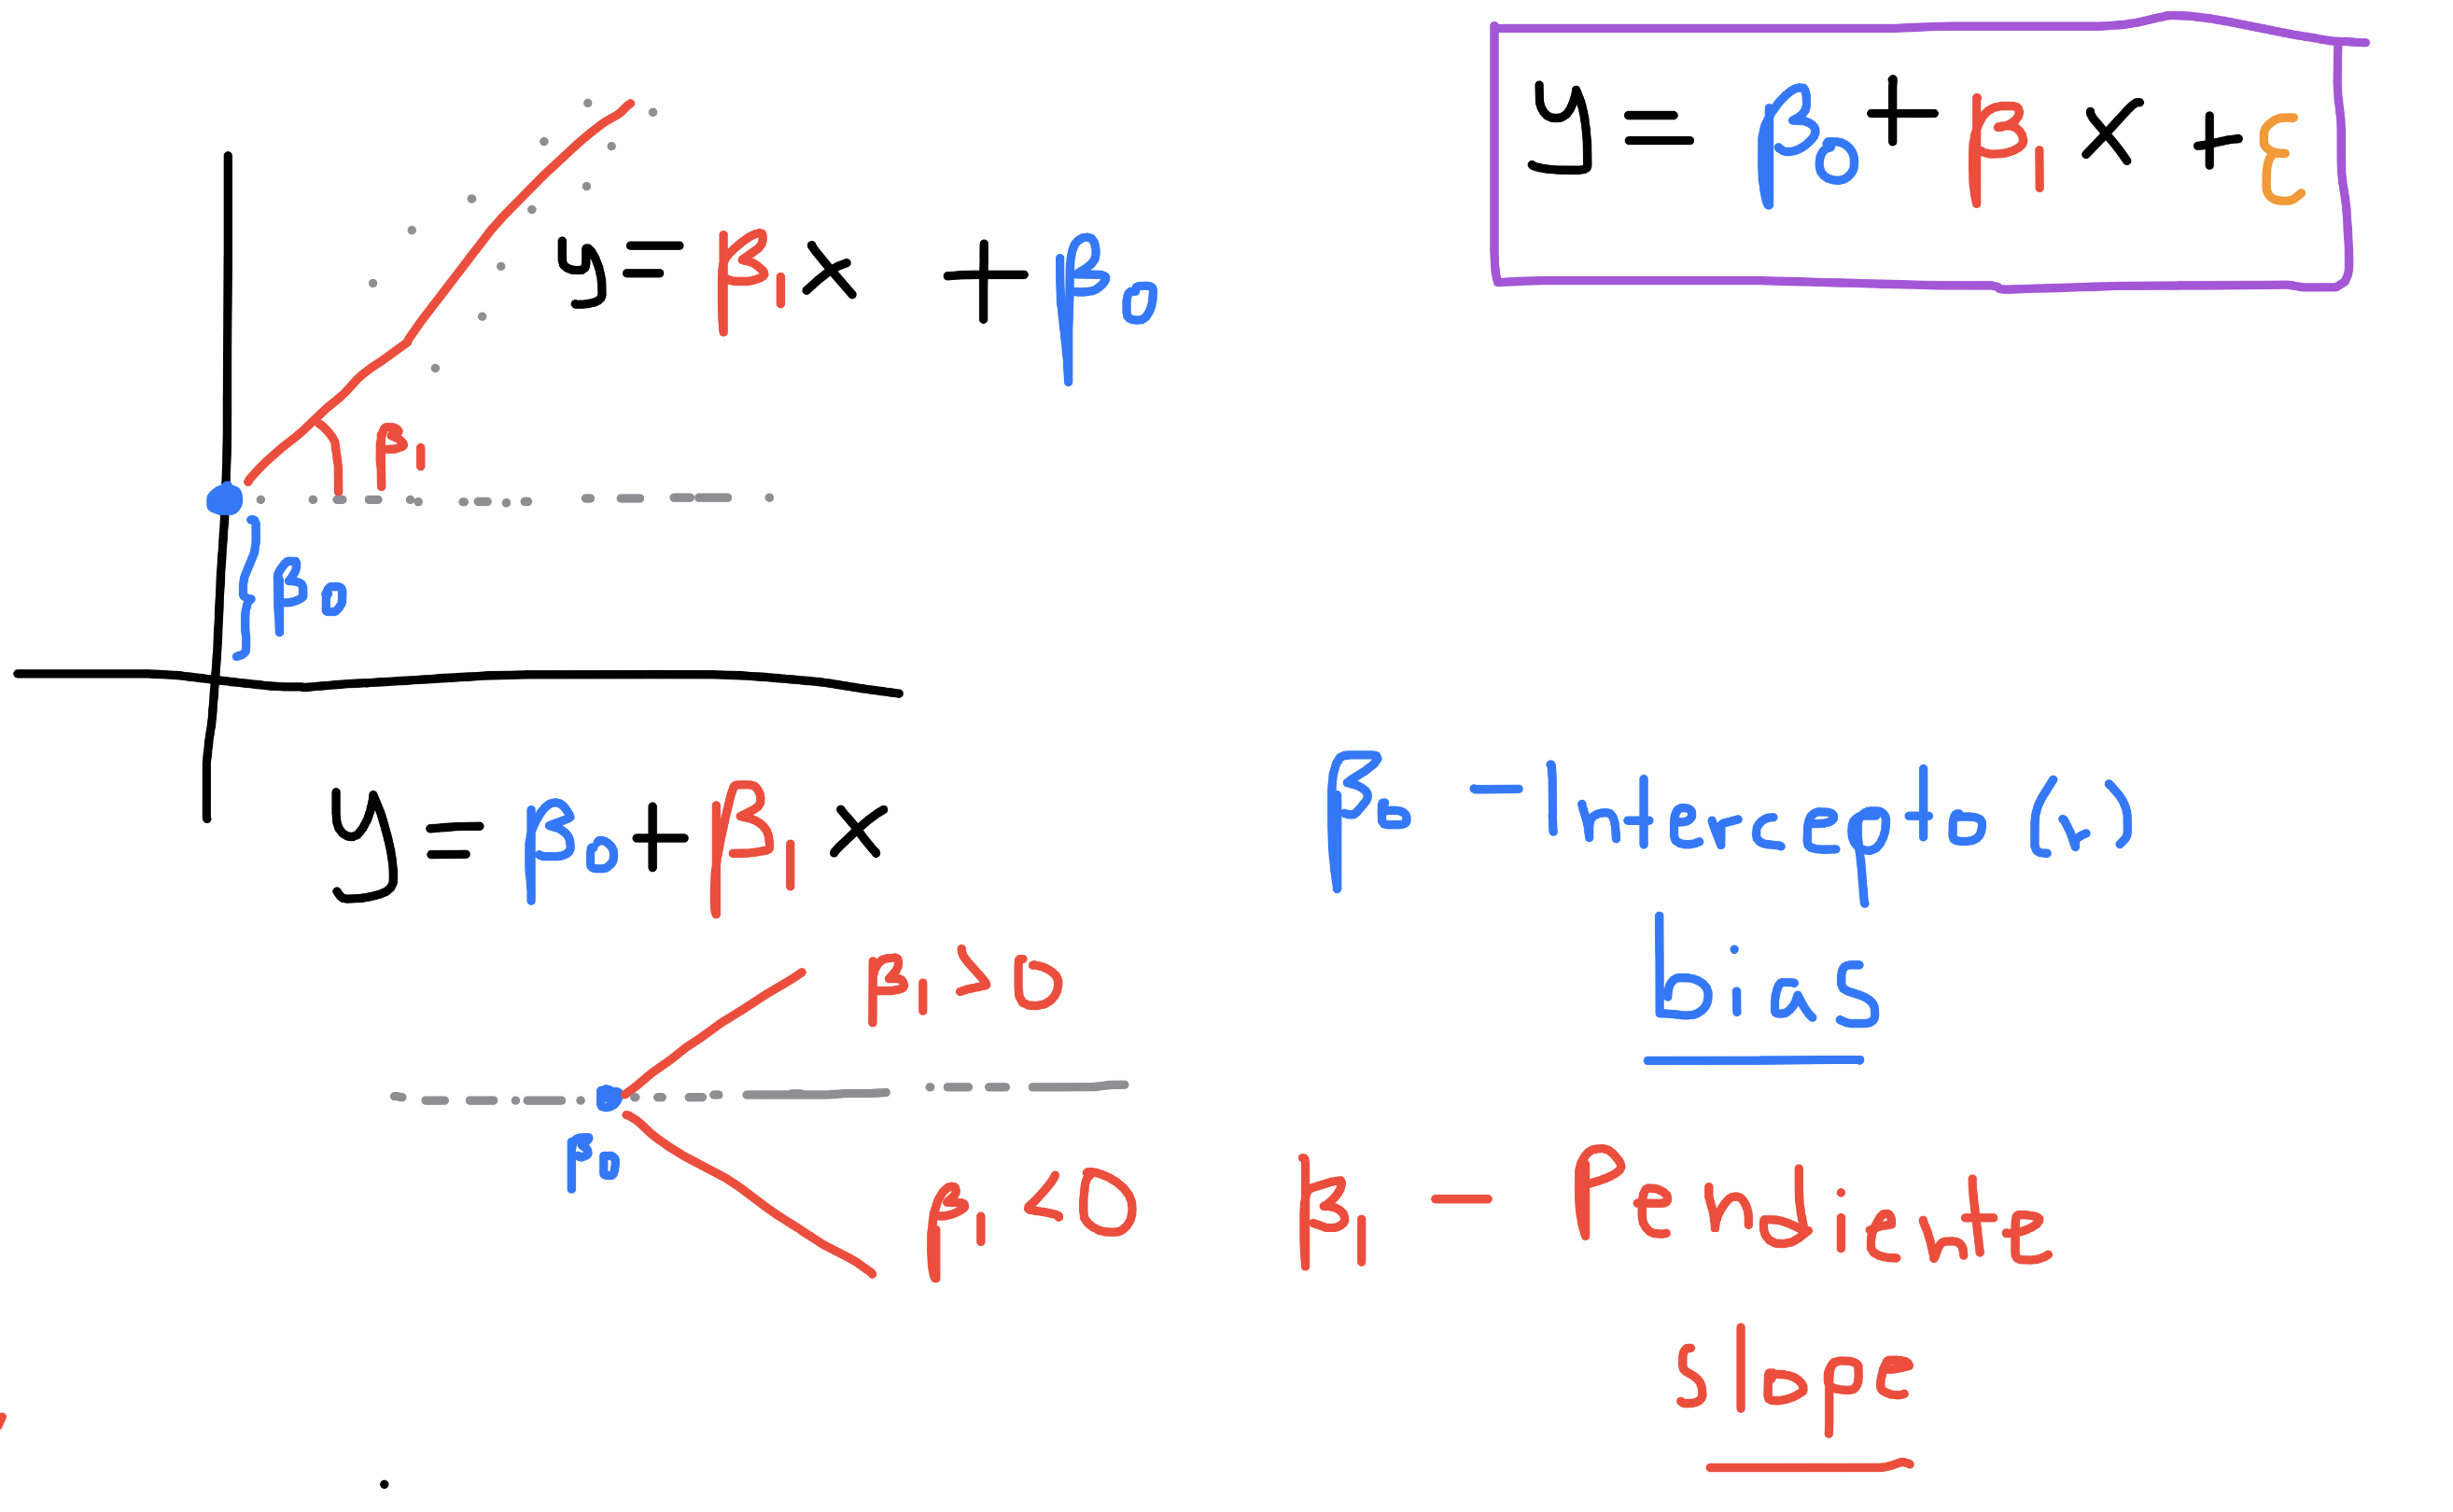 y = β0 + β1 x + ε
y = β1 x + β0
β1
β0
y = β0 + β1 x
β0 - Intercepto (n)
bias
β1 > 0
β0
β1 < 0
β1 - Pendiente
slope